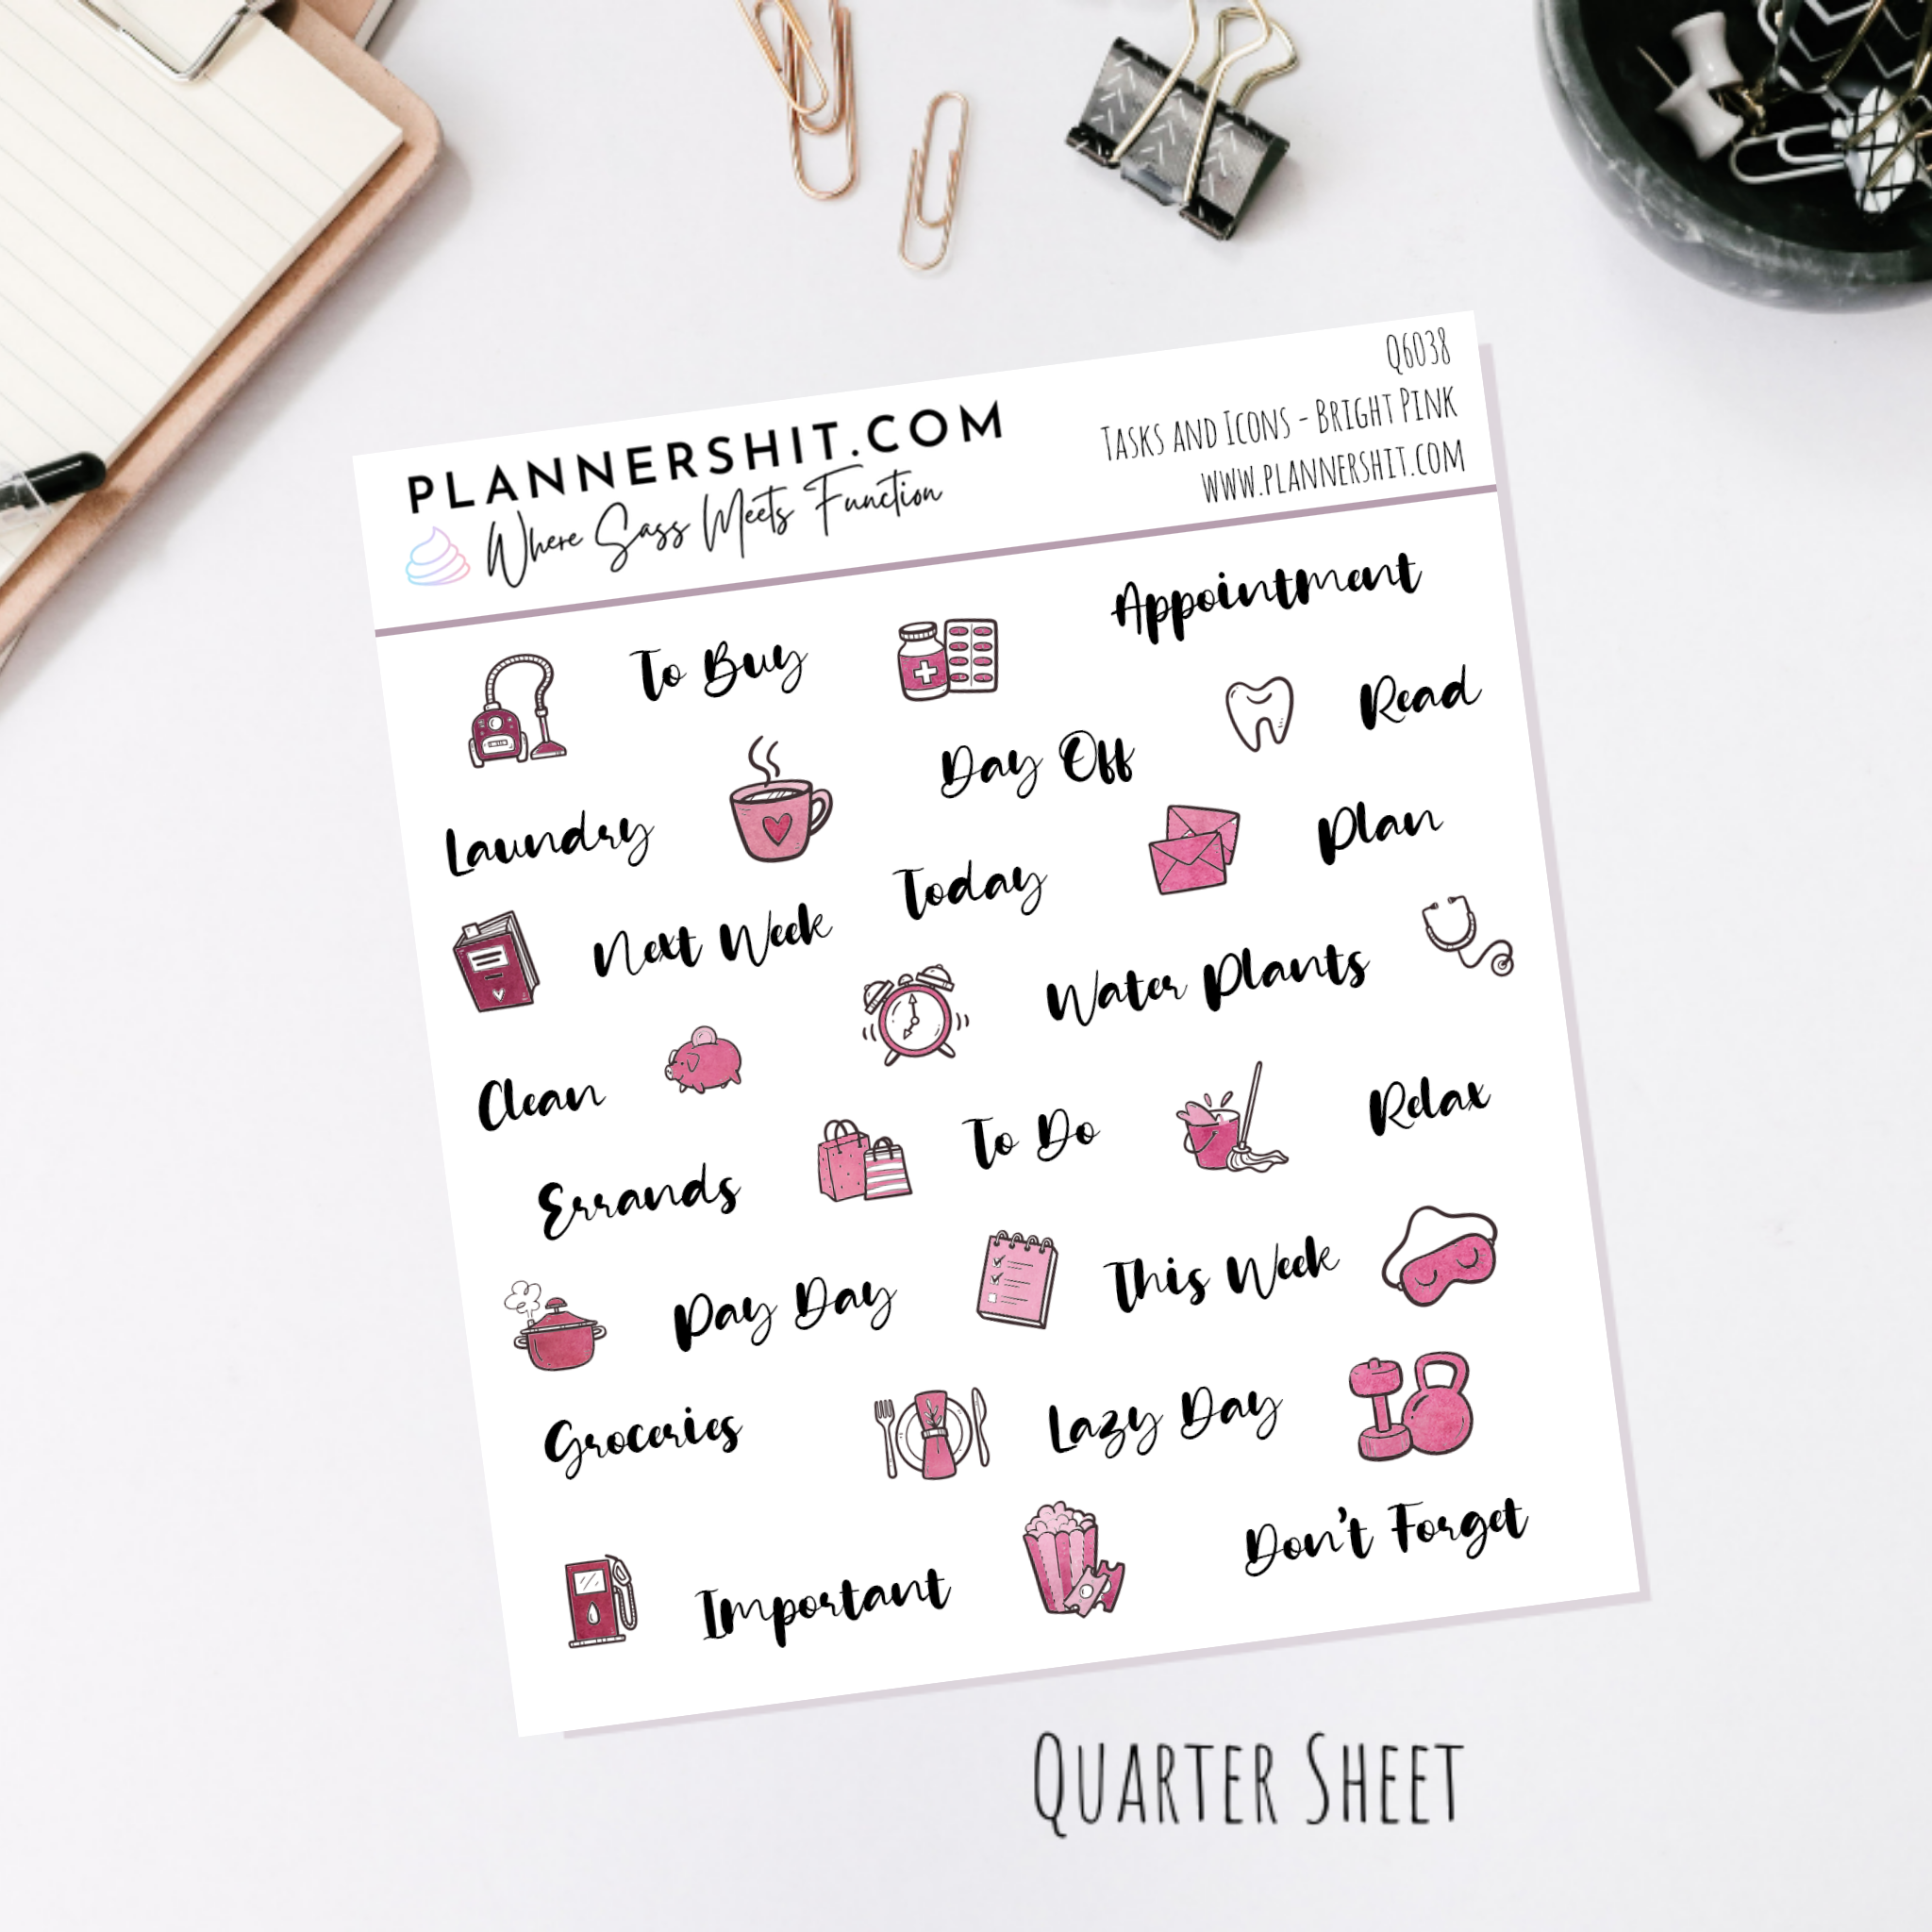 Q6038
PLANNERSHIT.COM
Tasks and Icons - Bright Pink
Where Sass Meets Function
www.plannershit.com
To Buy
Appointment
Read
Day Off
Laundry
Plan
Today
Next Week
Water Plants
Clean
To Do
Relax
Errands
This Week
Pay Day
Lazy Day
Groceries
Don't Forget
Important
Quarter Sheet